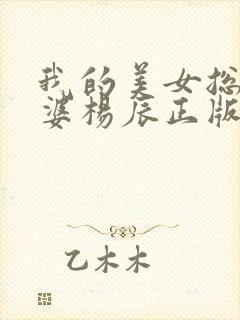 我的美女总
婆杨辰正版
乙木木